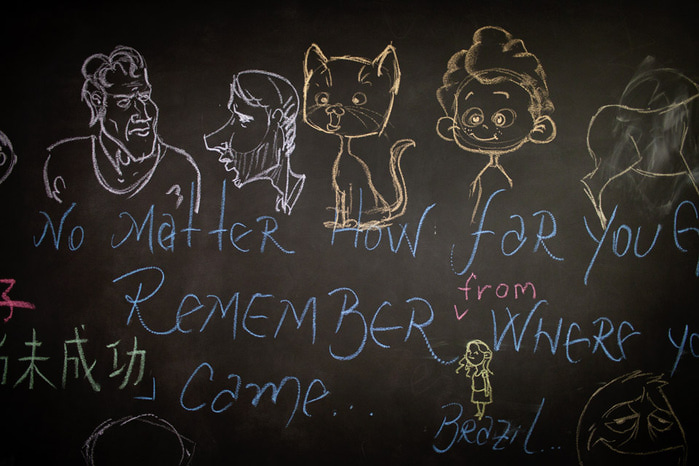 No Matter How far You G
子
Remember from Where yo
尚未成功」
Came...
Brazil...